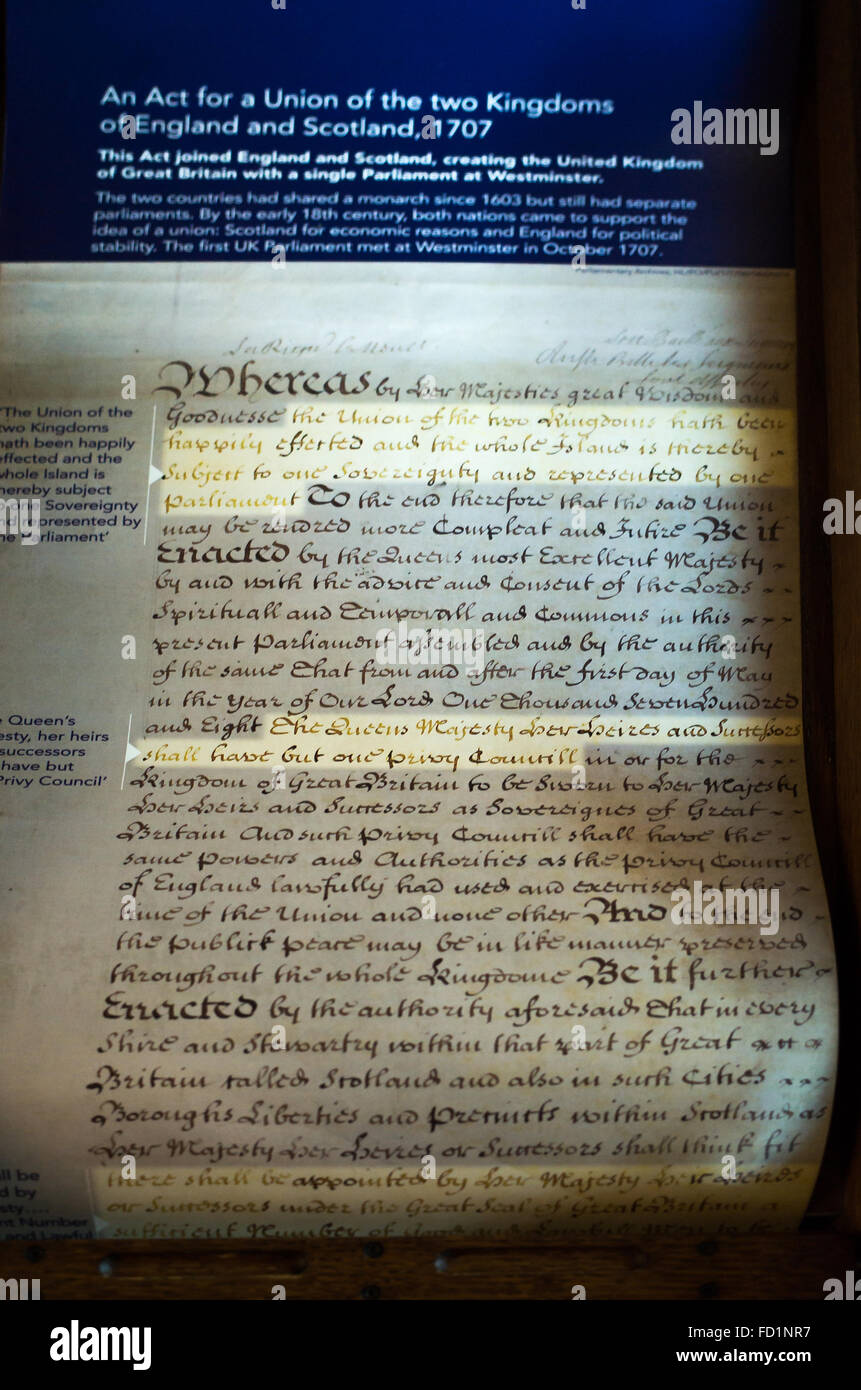 An Act for a Union of the two Kingdoms
of England and Scotland, 1707
This Act joined England and Scotland, creating the United Kingdom
of Great Britain with a single Parliament at Westminster.
The two countries had shared a monarch since 1603 but still had separate
parliaments. By the early 18th century, both nations came to support the
idea of a union: Scotland for economic reasons and England for political
stability. The first UK Parliament met at Westminster in October 1707.
Parliamentary Archives,
Whereas by Her Majesties great Wisdom and
Goodnesse the Union of the two Kingdoms hath been
happily effected and the whole Island is thereby
Subject to one Sovereignty and represented by one
Parliament To the end therefore that the said Union
may be rendred more Compleat and Intire Be it
Enacted by the Queens most Excellent Majesty
by and with the advice and Consent of the Lords
Spirituall and Temporall and Commons in this
present Parliament assembled and by the authority
of the same That from and after the first day of May
in the Year of Our Lord One Thousand Seven Hundred
and Eight The Queens Majesty Her Heires and Successors
shall have but one Privy Councill in or for the
Kingdom of Great Britain to be Sworn to Her Majesty
Her Heirs and Successors as Sovereignes of Great
Britain And such Privy Councill shall have the
same Powers and Authorities as the Privy Councill
of England lawfully had used and exercised at the
time of the Union and none other And to the end
the Publick Peace may be in like manner preserved
throughout the whole Kingdome Be it further
Enacted by the authority aforesaid That in every
Shire and Stewartry within that part of Great
Britain called Scotland and also in such Cities
Boroughs Liberties and Precincts within Scotland as
Her Majesty Her Heires or Successors shall think fit
there shall be appointed by Her Majesty Her Heirs
or Successors under the Great Seal of Great Britain a
sufficient Number of Good and Lawfull Men to be
'The Union of the
two Kingdoms
hath been happily
effected and the
whole Island is
thereby subject
to one Sovereignty
and represented by
one Parliament'
e Queen's
esty, her heirs
successors
have but
Privy Council'
ll be
d by
sty....
nt Number
and Lawful
alamy
Image ID: FD1NR7
www.alamy.com